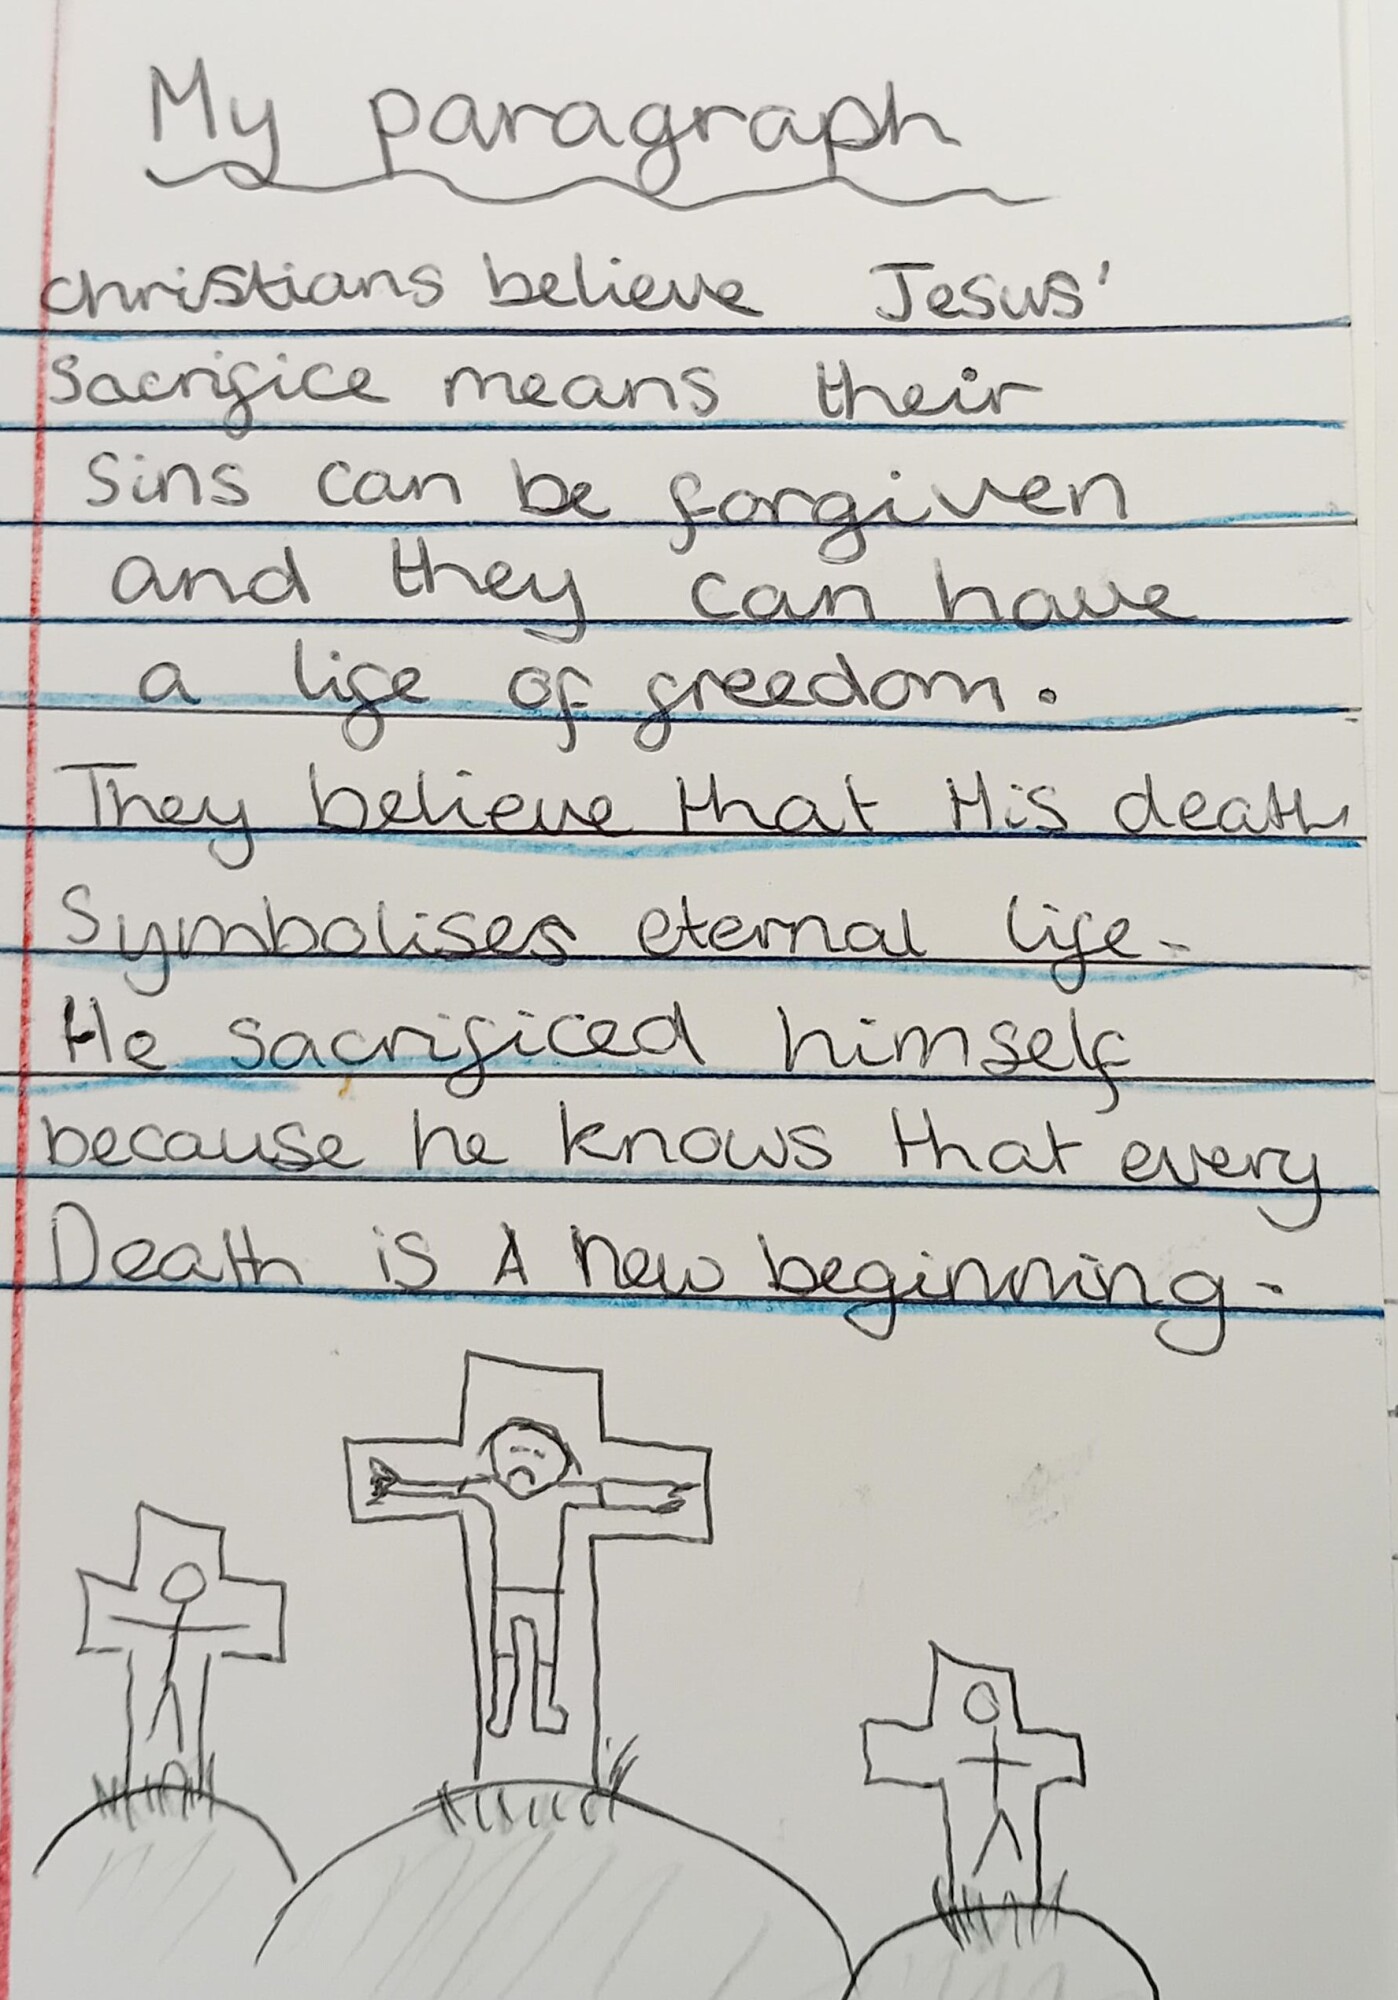 My paragraph
christians believe Jesus'
Sacrifice means their
Sins can be forgiven
and they can have
a life of freedom.
They believe that His death
Symbolises eternal life.
He sacrificed himself
because he knows that every
Death is A new beginning.